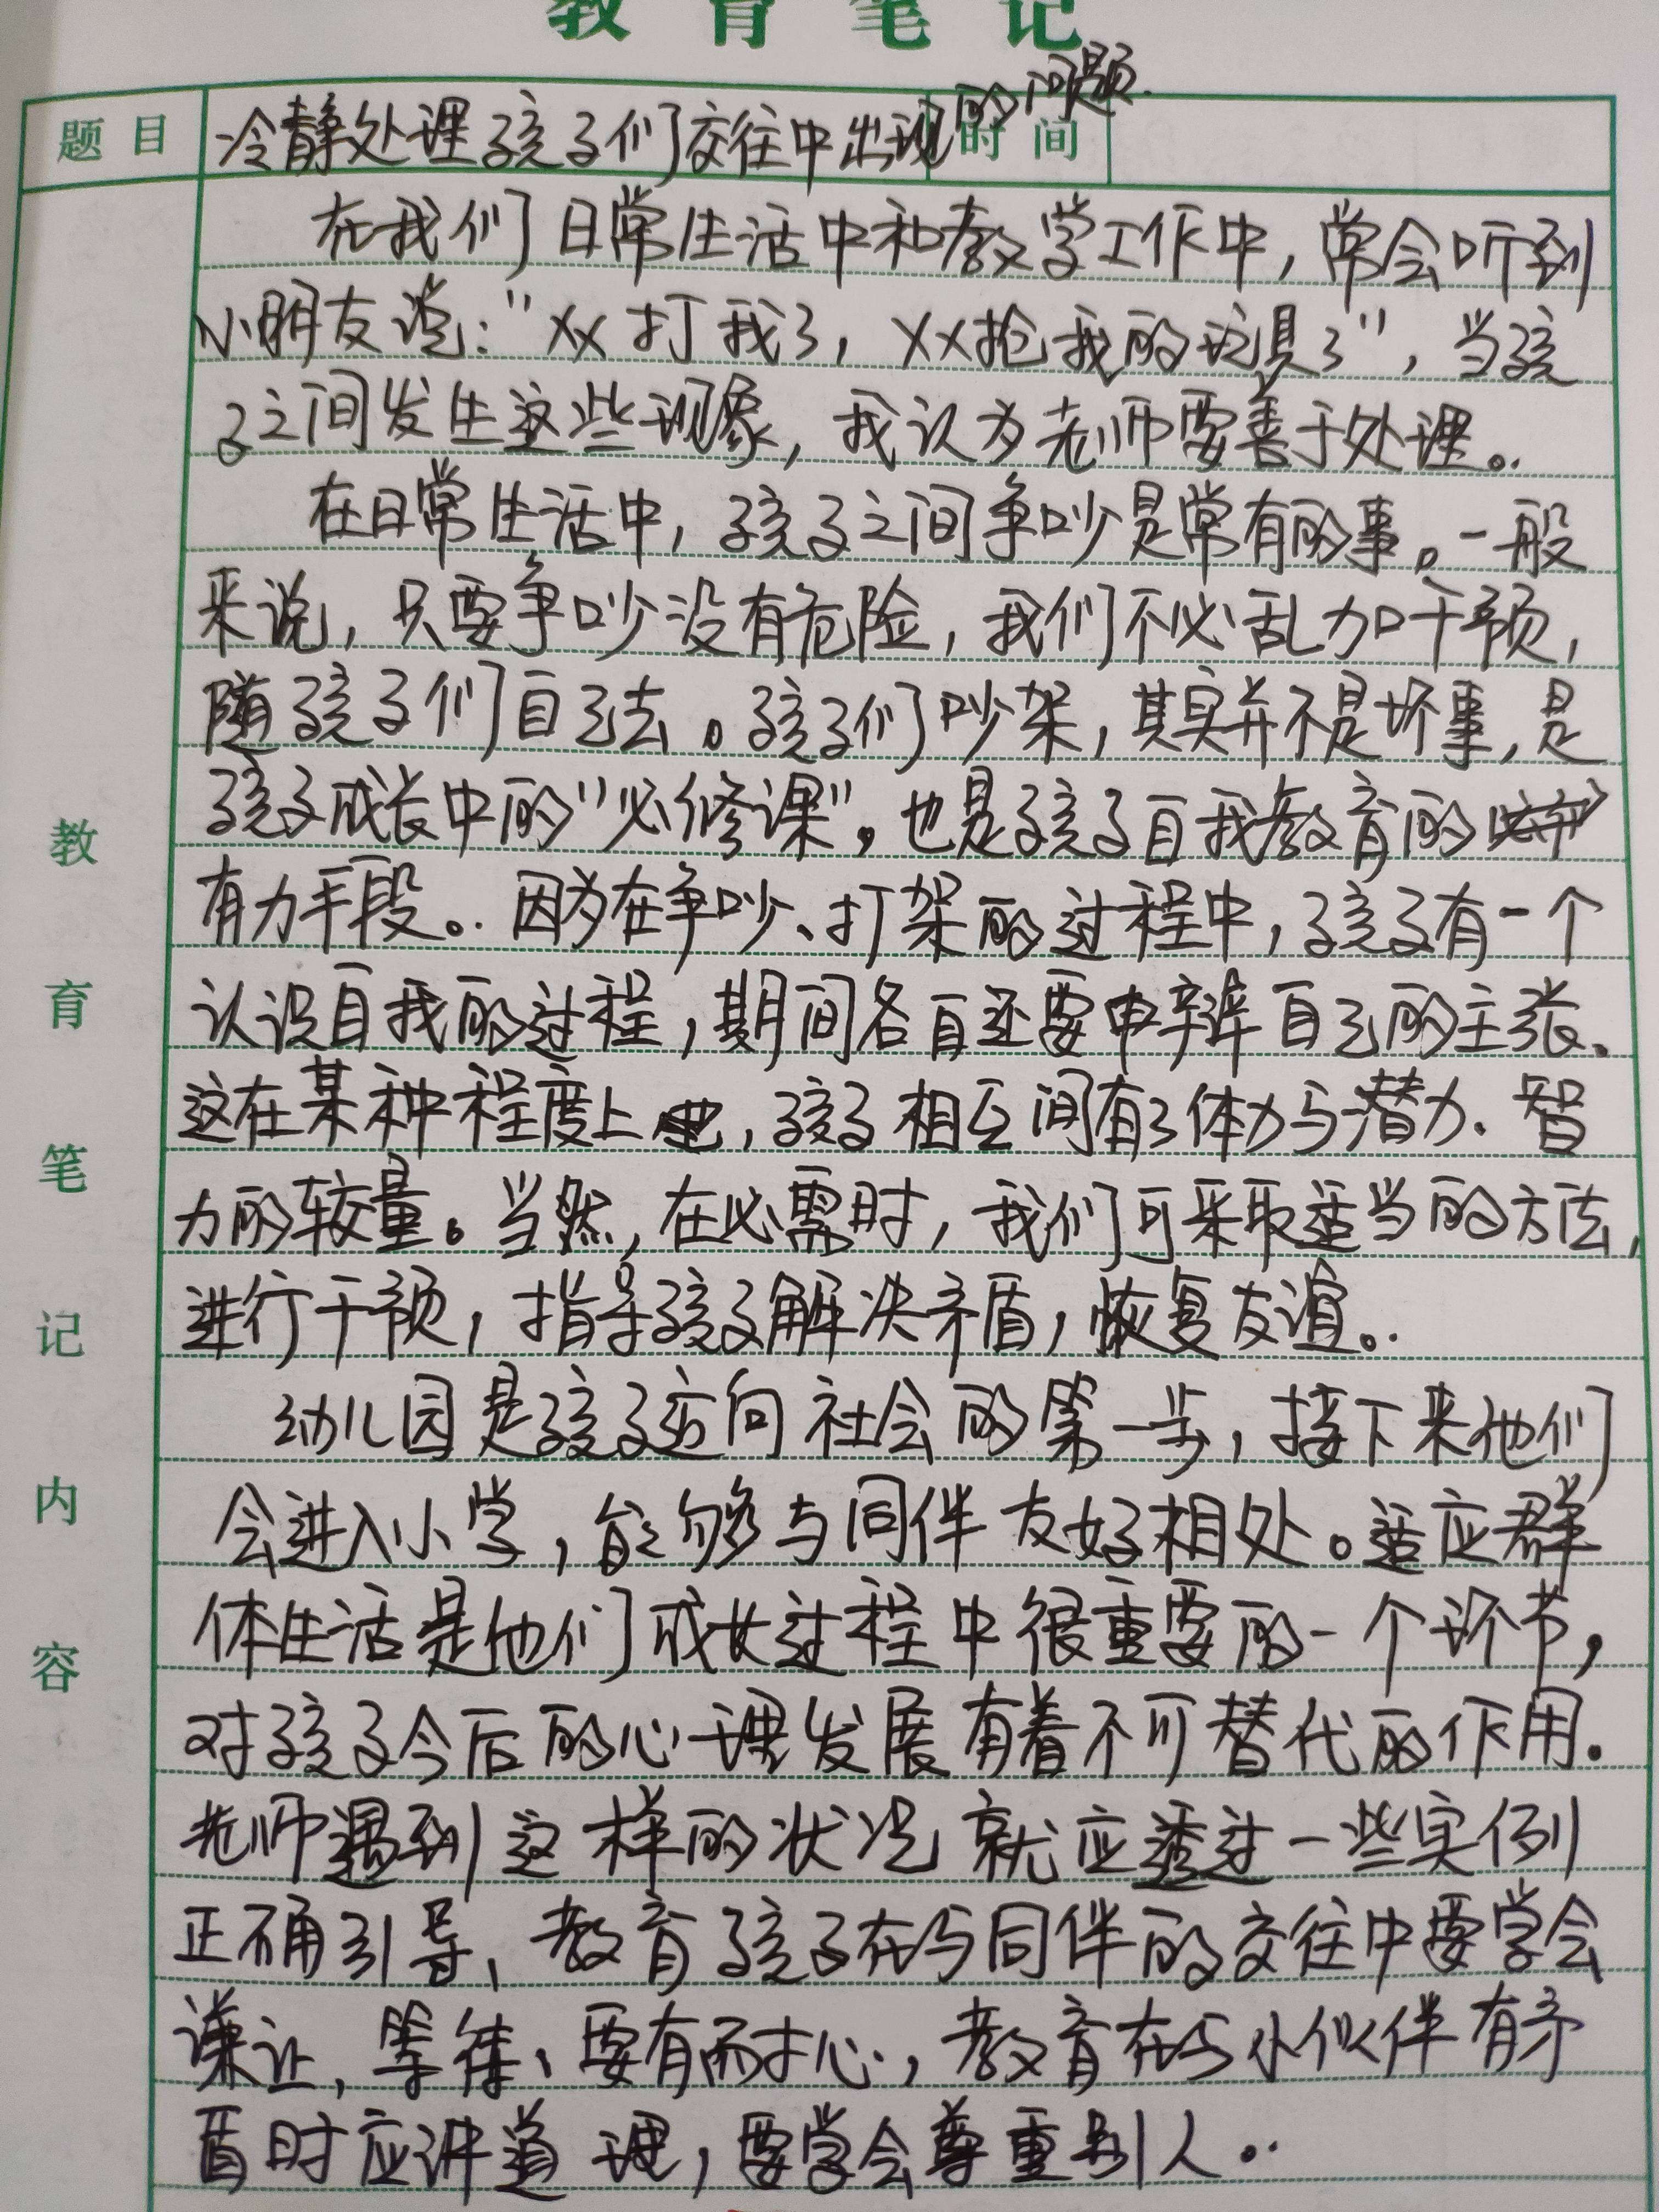 教育笔记
题目 冷静处理孩子们交往中出现的问题. 时间
在我们日常生活中和教学工作中,常会听到
小朋友说:"xx打我了,xx抢我的玩具了",当孩
子之间发生这些现象,我认为老师要善于处理。
在日常生活中,孩子之间争吵是常有的事。一般
来说,只要争吵没有危险,我们不必乱加干预,
随孩子们自己去。孩子们吵架,其实并不是坏事,是
孩子成长中的"必修课",也是孩子自我教育的
有力手段。因为在争吵、打架的过程中,孩子有一个
认识自我的过程,期间各自还要申辩自己的主张、
这在某种程度上,孩子相互间有了体力与潜力、智
力的较量。当然,在必需时,我们可采取适当的方法,
进行干预,指导孩子解决矛盾,恢复友谊。
幼儿园是孩子迈向社会的第一步,接下来他们
会进入小学,能够与同伴友好相处。适应群
体生活是他们成长过程中很重要的一个环节,
对孩子今后的心理发展有着不可替代的作用.
老师遇到这样的状况就应透过一些实例
正确引导、教育孩子在与同伴的交往中要学会
谦让,等待、要有耐心,教育在与小伙伴有矛
盾时应讲道理,要学会尊重别人。
教育笔记内容